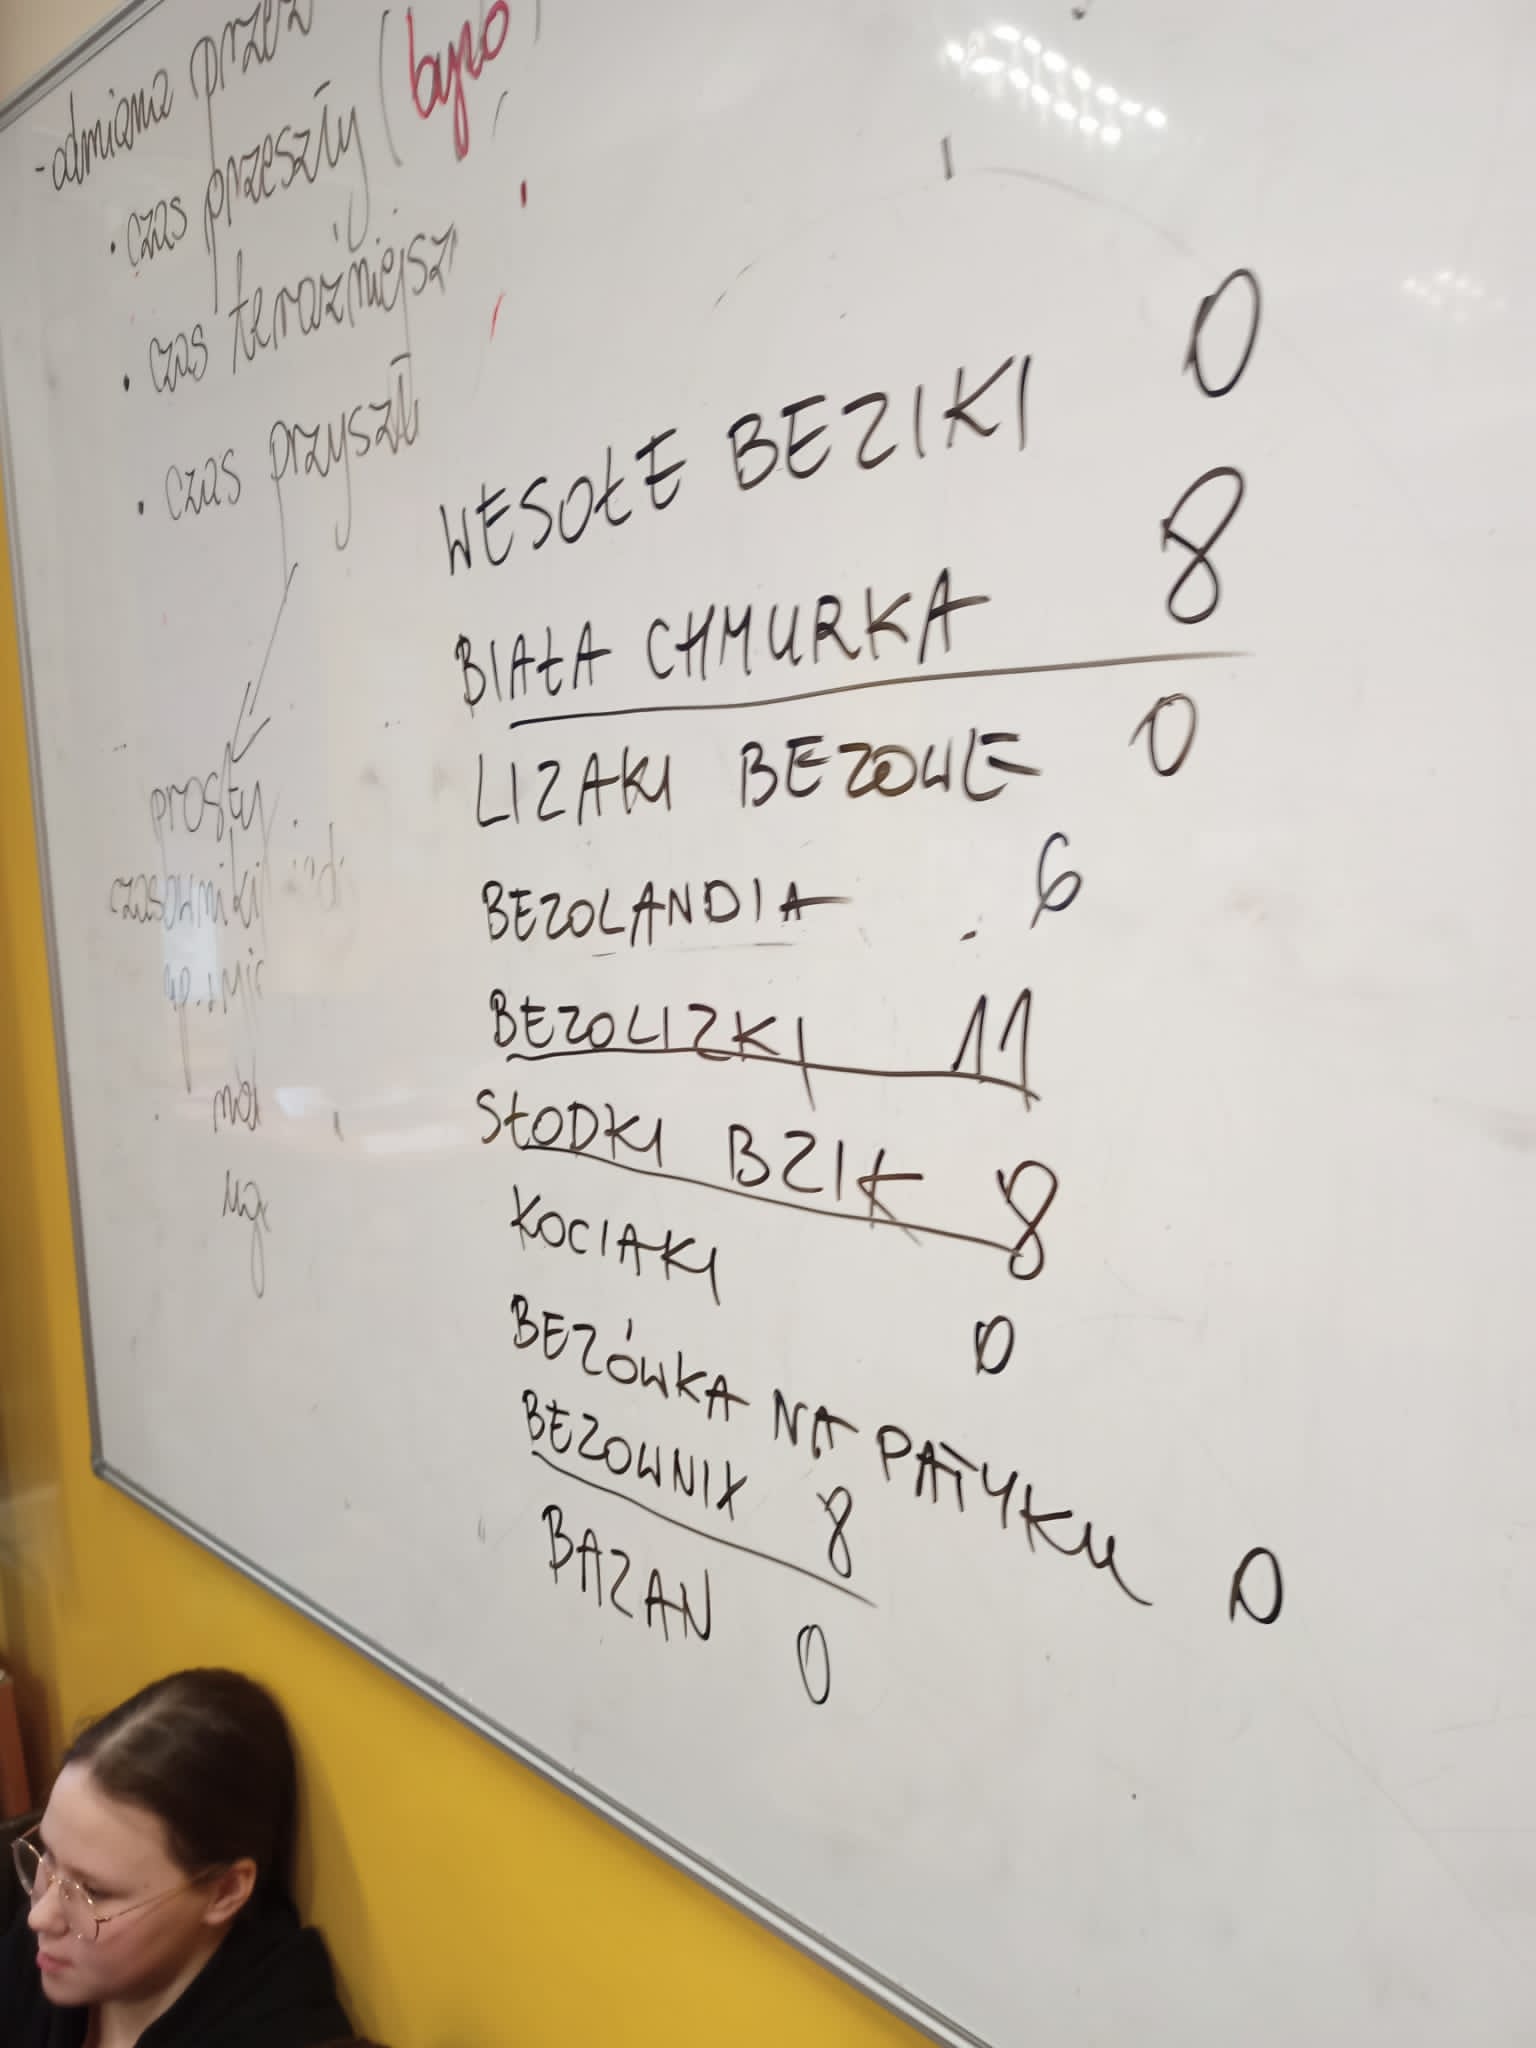 - odmiana przez
• czas przeszły (było)
• czas teraźniejsz
• czas przyszł
prosty
czasowniki
WESOŁE BEZIKI 0
BIAŁA CHMURKA 8
LIZAKI BEZOWE 0
BEZOLANDIA 6
BEZOLIZKI 11
SŁODKI BZIK 8
KOCIAKI 0
BEZÓWKA NA PATYKU 0
BEZOWNIX 8
BAZAN 0